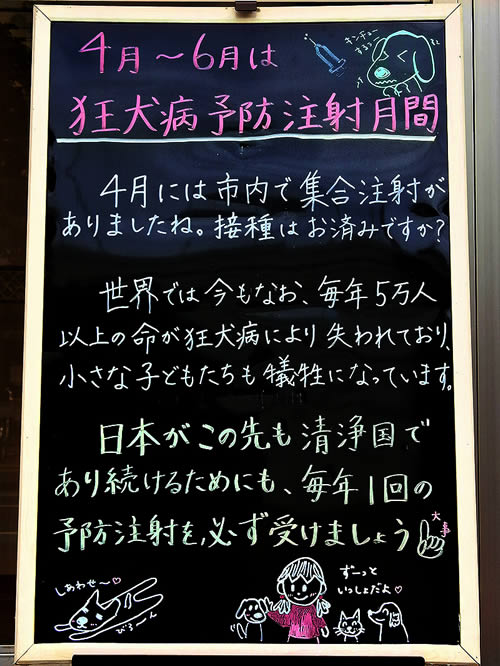 4月～6月は
キンチョー
する～
狂犬病予防注射月間
4月には市内で集合注射が
ありましたね。接種はお済みですか？
世界では今もなお、毎年5万人
以上の命が狂犬病により失われており、
小さな子どもたちも犠牲になっています。
日本がこの先も清浄国で
あり続けるためにも、毎年1回の
予防注射を必ず受けましょう
大事
しあわせ～♡
びろーん
ずーっと
いっしょだよ♡